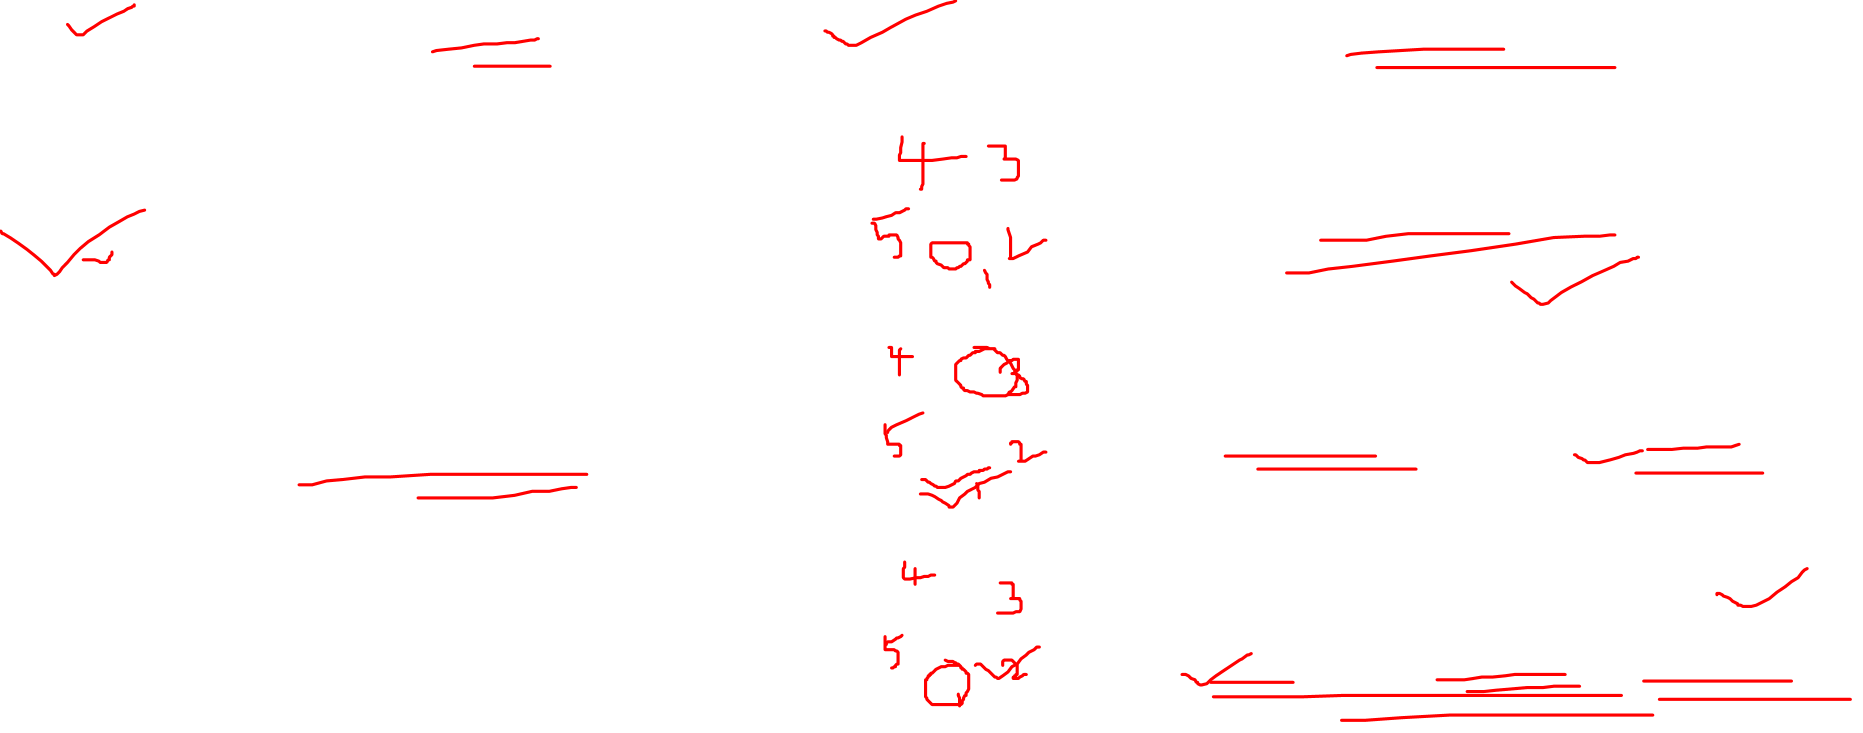 4 3
5 2
1
4 3
5 2
1
4 3
5 2
1